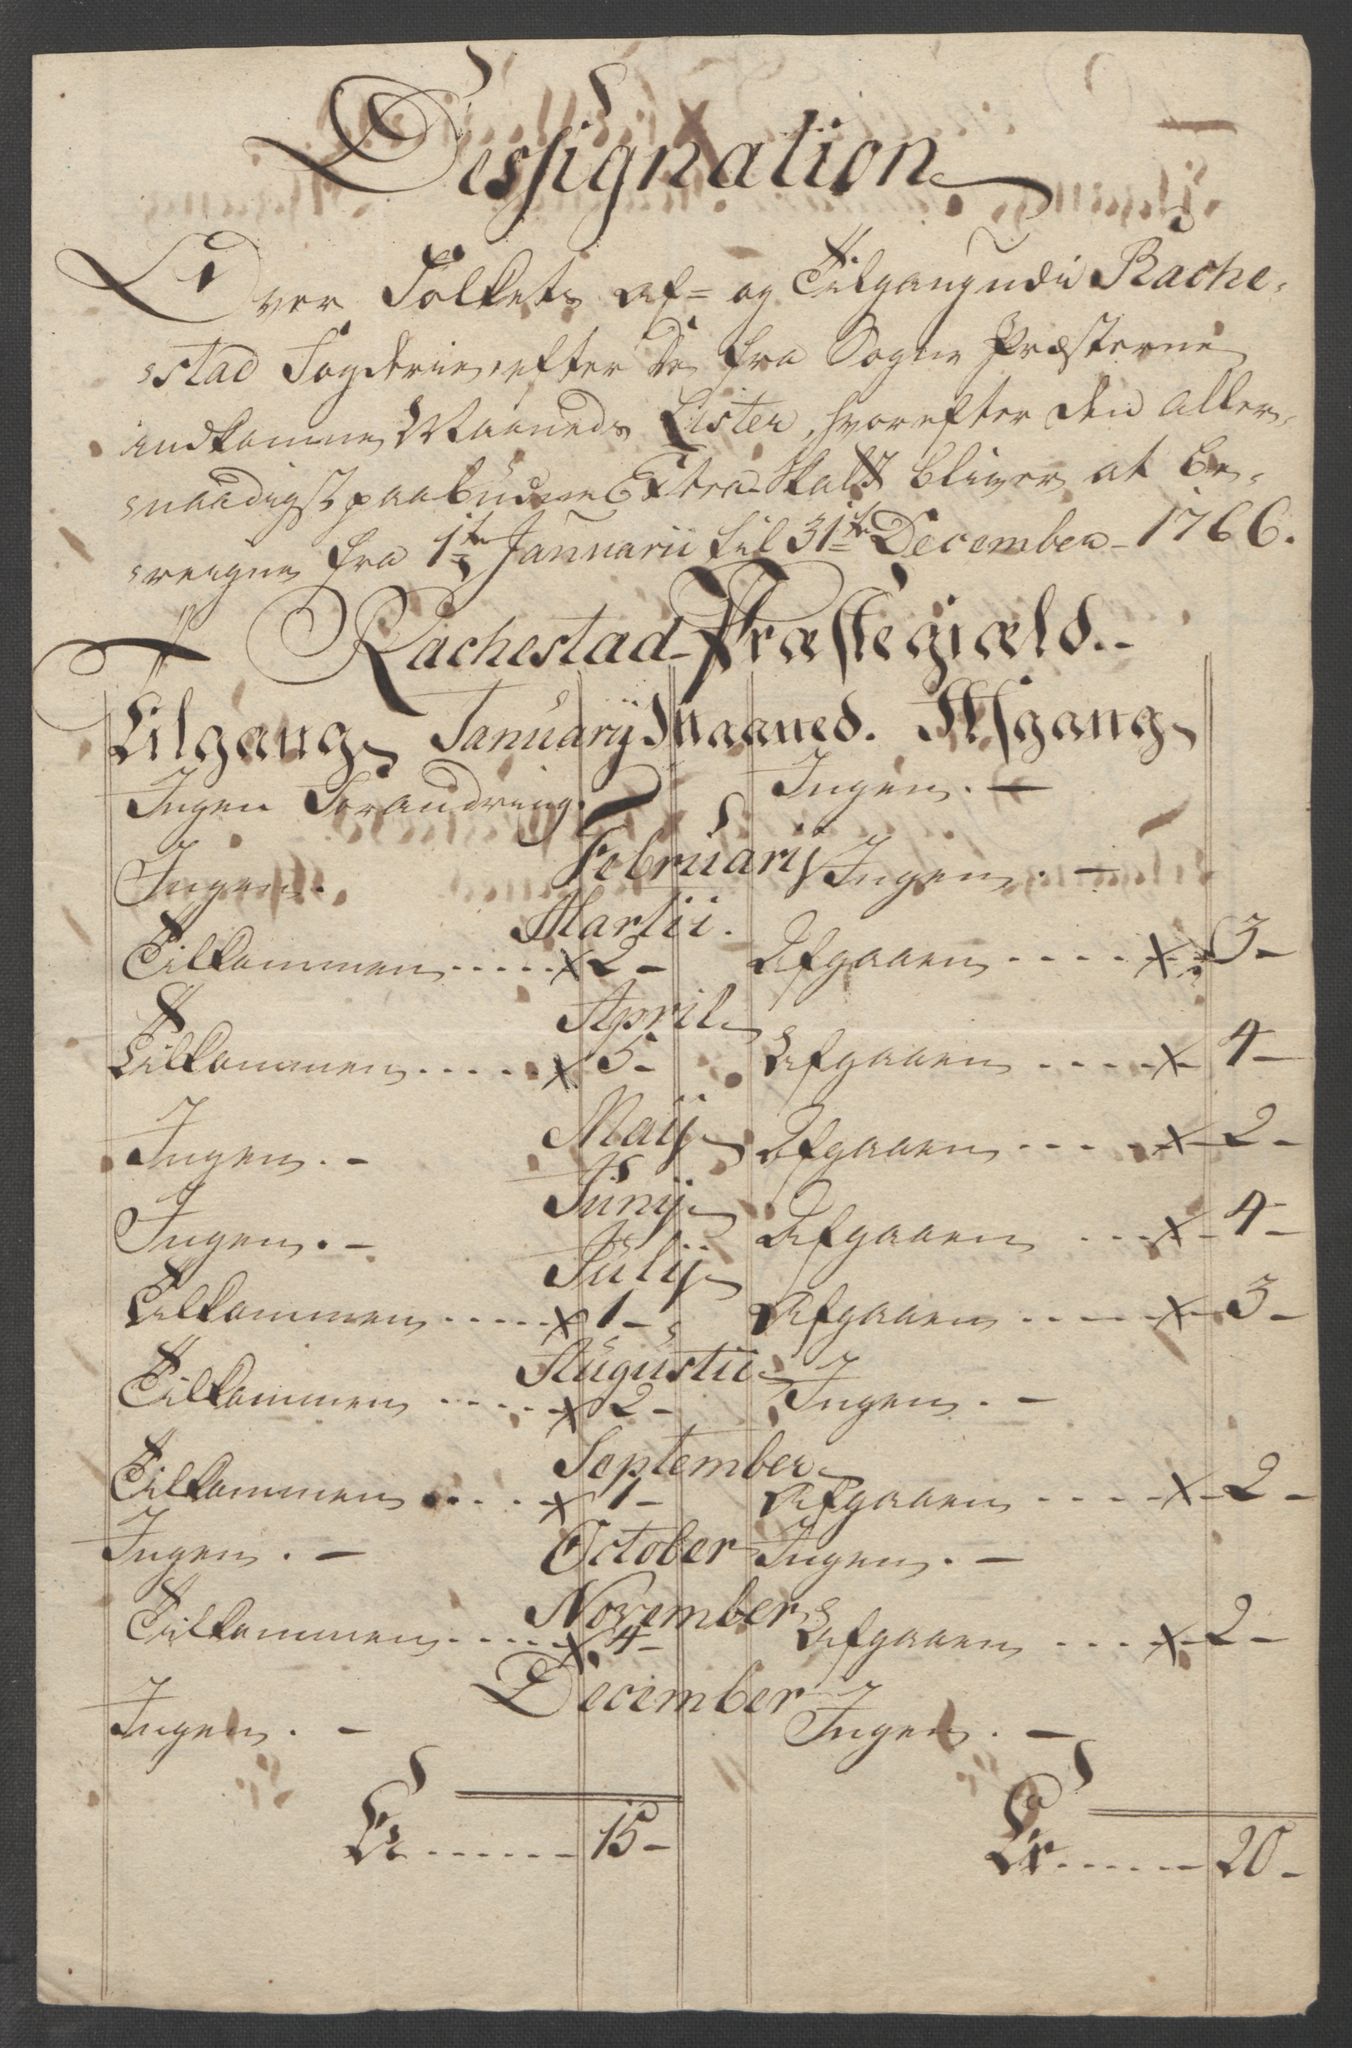 Dessignation
Over Folkets af= og Tilgang udi Rache,
stad Fogderie, efter de fra Sogne Præsterne
indkomne Maaneds Lister, hvorefter den aller,
naadigst paabudne Extra Skatt bliver at be,
reigne fra 1te Januarii til 31te December 1766.
Rachestad Præstegiæld.
Tilgang Januarij Maaned. Afgang
Ingen Forandring. Ingen. —
Februarij
Ingen. Ingen. —
Martii.
Tilkommen ..... x 2 – Afgaaen ..... x 3 –
April
Tilkommen ..... x 5 – Afgaaen ..... x 4 –
Maij
Ingen. – Afgaaen ..... x 2 –
Junij
Ingen. – Afgaaen .... x 4 –
Julij
Tilkommen ..... x 1 – Afgaaen ..... x 3 –
Augustii
Tilkommen ..... x 2 – Ingen. –
September
Tilkommen ..... x 1 – Afgaaen .... x 2 –
Ingen. – October Ingen. –
November
Tilkommen ..... x 4 – Afgaaen .... x 2 –
December
Ingen. – Ingen. –
15 – 20 –